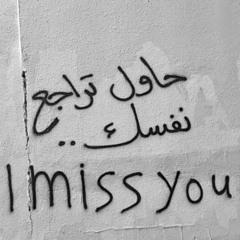 حاول تراجع
نفسك..
I miss you